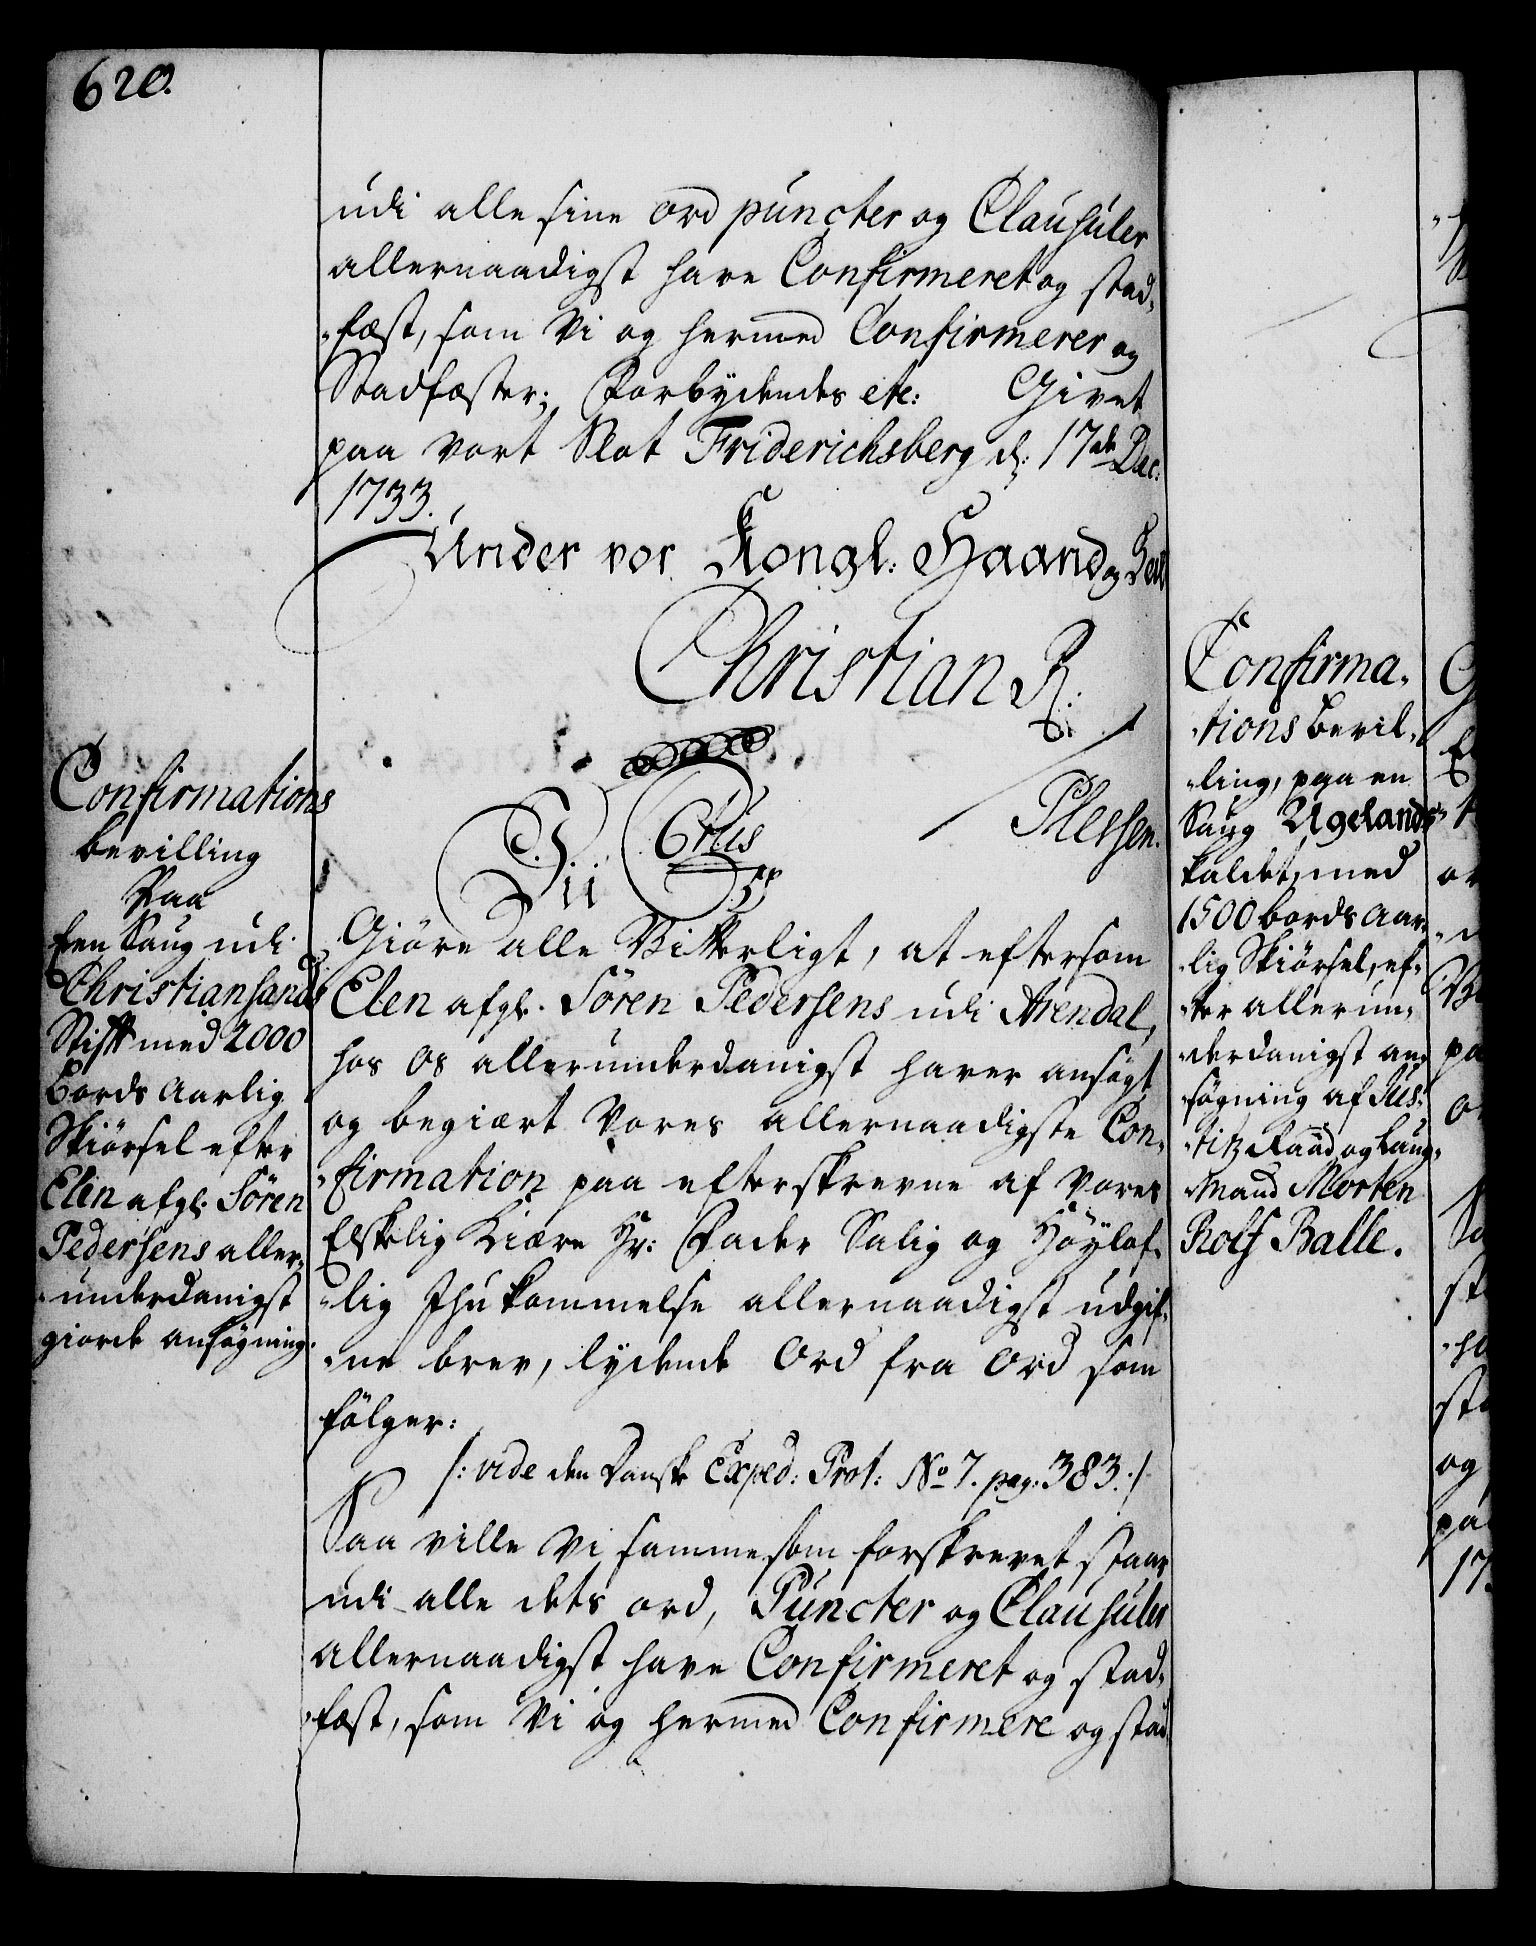 620.
udi alle sine ord puncter og Clausuler
allernaadigst have Confirmeret og stad-
-fæst, som Vi og hermed Confirmerer og
Stadfæster; Forbydendes etc: Givet
paa vort Slot Friderichsberg d: 17de Dec:
1733.
Under vor Kongl: Haand og
Christian R.
Plessen.
Confirmations
bevilling
Paa
Een Saug udi
Christiansands
Stift med 2000
Bords Aarlig
Skiörsel efter
Elen afgl: Sören
Pedersens aller-
-underdanigst
giorde ansögning.
Vii C 6tus
Giöre alle Vitterligt, at eftersom
Elen afgl. Sören Pedersens udi Arendal,
hos os allerunderdanigst haver ansögt
og begiært Vores allernaadigste Con-
-firmation paa efterskrevne af Vores
Elskelig Kiære Hr: Fader Salig og Höylof-
-lig Ihukommelse allernaadigst udgif-
-ne brev, lydende Ord fra Ord som
fölger:
/: vide den Danske Exped: Prot: No 7. pag: 383. :/
Saa ville Vi samme som forskrevet staar
udi alle dets ord, Puncter og Clausuler
allernaadigst have Confirmeret og stad-
-fæst, som Vi og hermed Confirmere og stad-
Confirma-
-tions bevil-
-ling, paa en
Saug Ugelands
kaldet, med
1500 bords Aar-
-lig Skiörsel, ef-
-ter allerun-
-derdanigst an-
-sögning af Jus-
-titz Raad og Laug-
-Mand Morten
Rolf Balle.